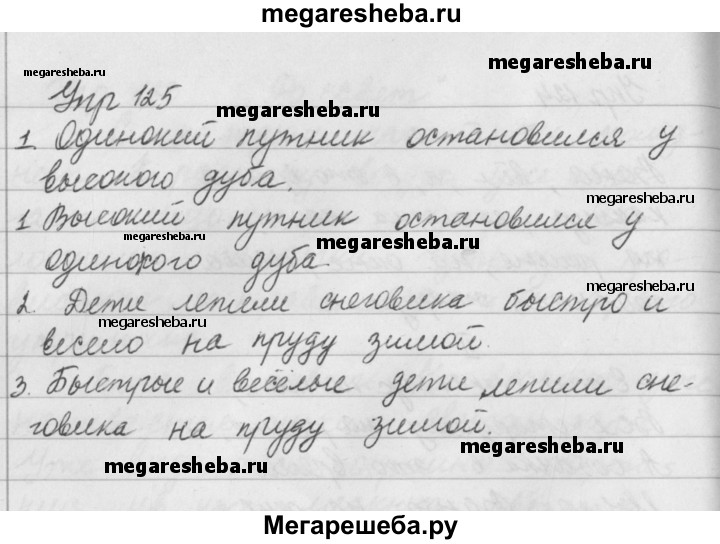 megaresheba.ru
megaresheba.ru
megaresheba.ru
Упр 125
megaresheba.ru
1. Одинокий путник остановился у
высокого дуба.
megaresheba.ru
1 Высокий путник остановился у
megaresheba.ru
megaresheba.ru
одинокого дуба
2. Дети лепили снеговика быстро и
megaresheba.ru
megaresheba.ru
весело на пруду зимой.
3. Быстрые и весёлые дети лепили сне-
говика на пруду зимой.
megaresheba.ru
megaresheba.ru
Мегарешеба.ру